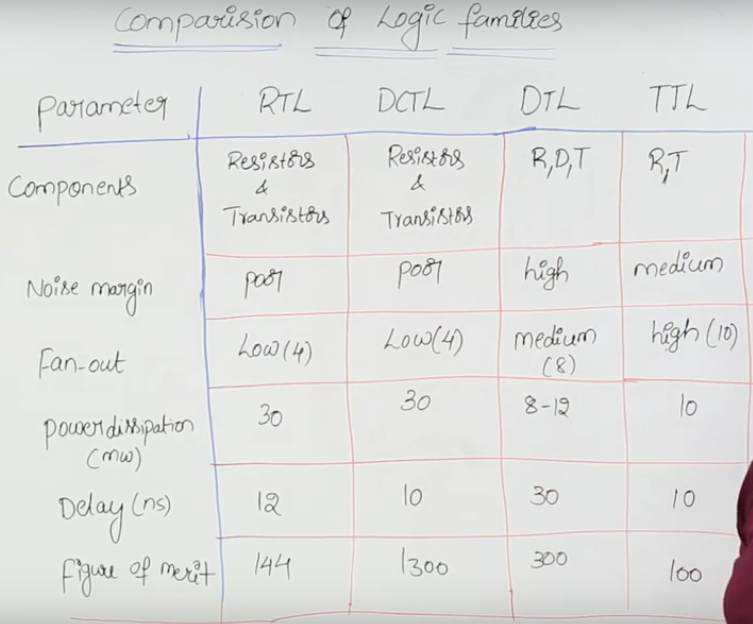 Comparision of Logic families
Parameter RTL DCTL DTL TTL
Components Resistors & Transistors Resistors & Transistors R,D,T R,T
Noise margin poor poor high medium
Fan-out Low(4) Low(4) medium (8) high(10)
power dissipation (mw) 30 30 8-12 10
Delay (ns) 12 10 30 10
figure of merit 144 1300 300 100